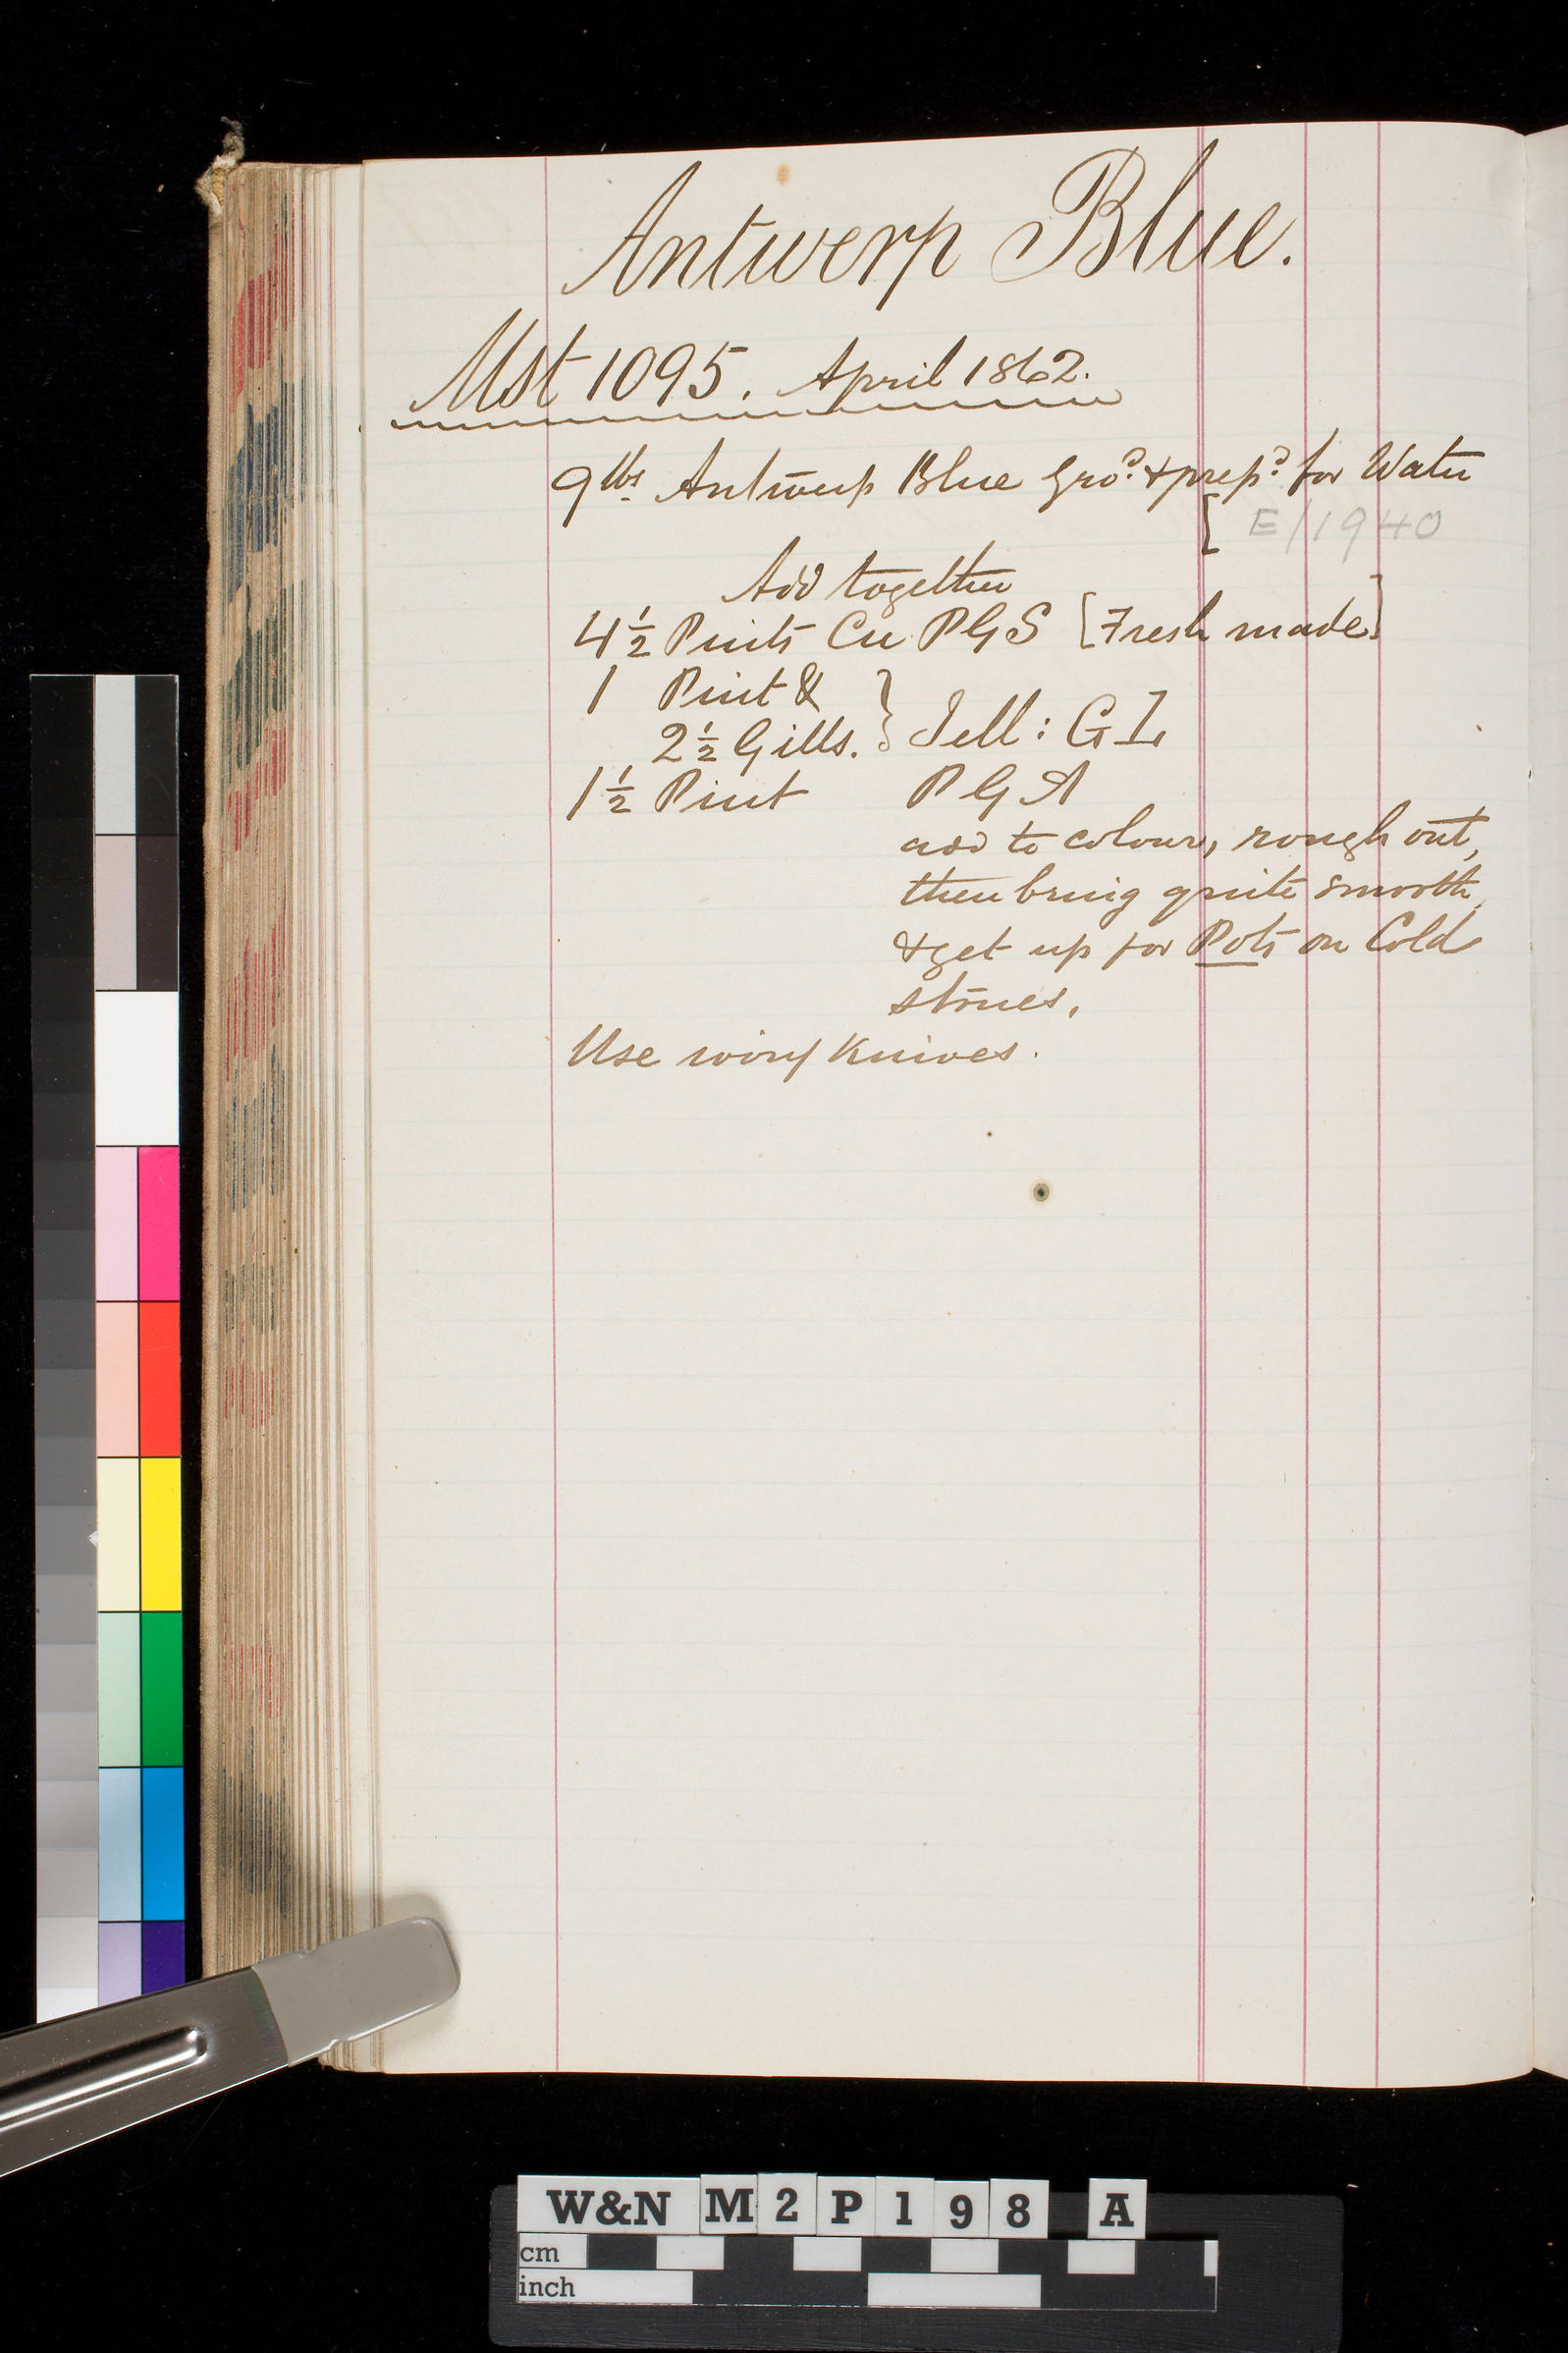 Antwerp Blue.
Mst 1095. April 1862.
9 lbs Antwerp Blue Gro.d & prep.d for Water
[ E/1940
Add together
4½ Pints Cu PGS [Fresh made]
1 Pint &
2½ Gills. } Jell: GI,
1½ Pint PGA
add to colour, rough out,
then bring quite smooth,
& get up for Pots on Cold
stones.
Use ivory Knives.
W&N M2P198 A
cm
inch